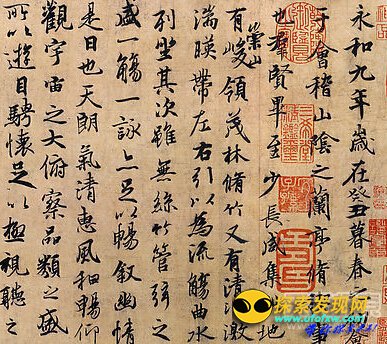 永和九年歲在癸丑暮春之會
于會稽山陰之蘭亭脩事
也羣賢畢至少長咸集地
有崇山峻領茂林脩竹又有清流激
湍暎帶左右引以為流觴曲水
列坐其次雖無絲竹管弦之
盛一觴一詠亦足以暢敘幽情
是日也天朗氣清惠風和暢仰
觀宇宙之大俯察品類之盛
所以遊目騁懷足以極視聽之
探索发现网